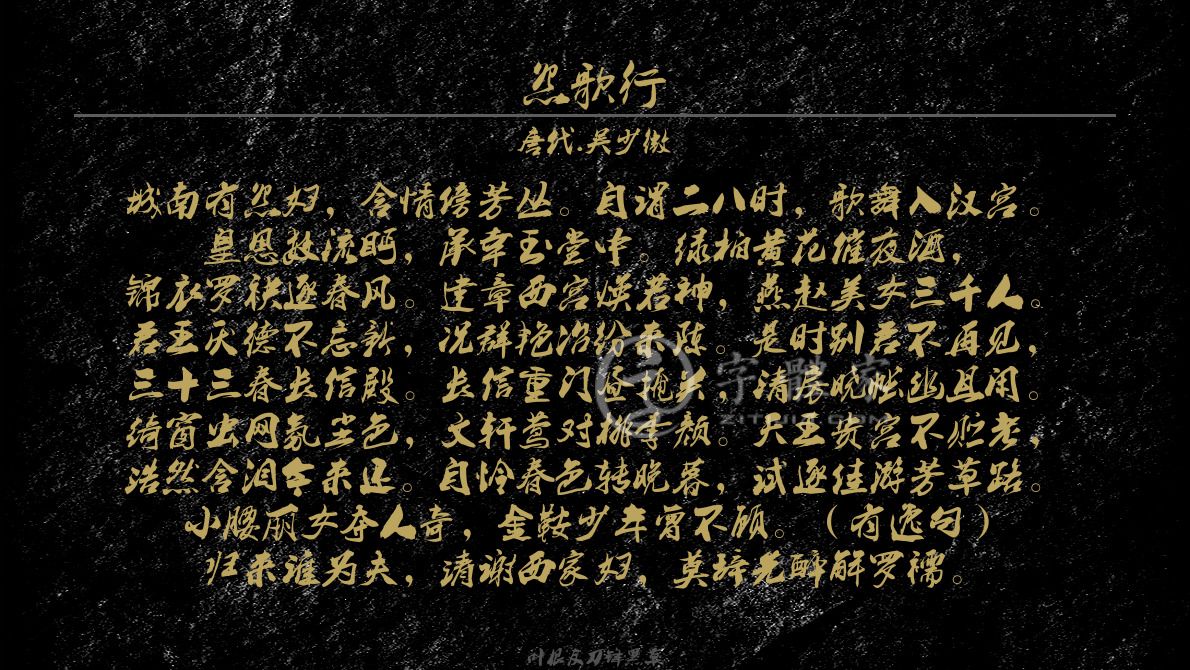 怨歌行
唐代.吴少微
城南有怨妇，含情傍芳丛。自谓二八时，歌舞入汉宫。
皇恩数流眄，承幸玉堂中。绿柏黄花催夜酒，
锦衣罗袂逐春风。建章西宫焕若神，燕赵美女三千人。
君王厌德不忘新，况群艳冶纷来陈。是时别君不再见，
三十三春长信殿。长信重门昼掩关，清房晓帐幽且闲。
绮窗虫网氛尘色，文轩莺对桃李颜。天王贵宫不贮老，
浩然含泪今来还。自怜春色转晚暮，试逐佳游芳草路。
小腰丽女夺人奇，金鞍少年曾不顾。（有逸句）
归来谁为夫，请谢西家妇，莫辞先醉解罗襦。
字體家
ZITIJIA.COM